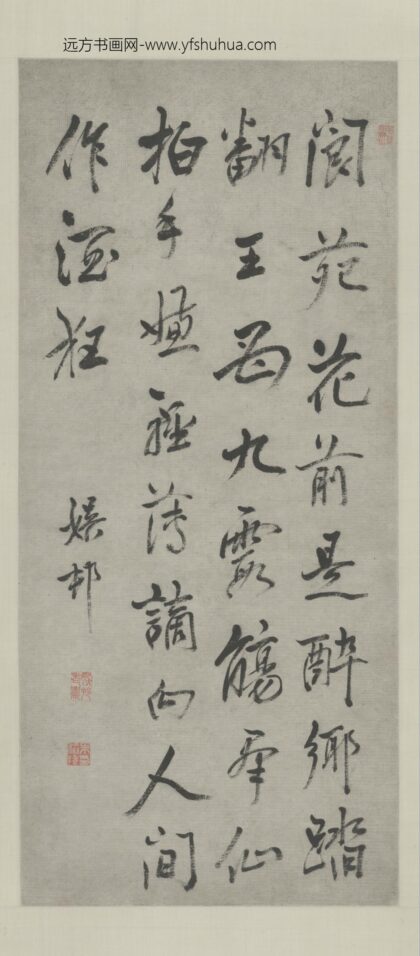 远方书画网-www.yfshuhua.com
閬苑花前是醉鄉踏
翻王母九霞觴羣仙
拍手嫌輕薄謫向人間
作酒狂
娛邨